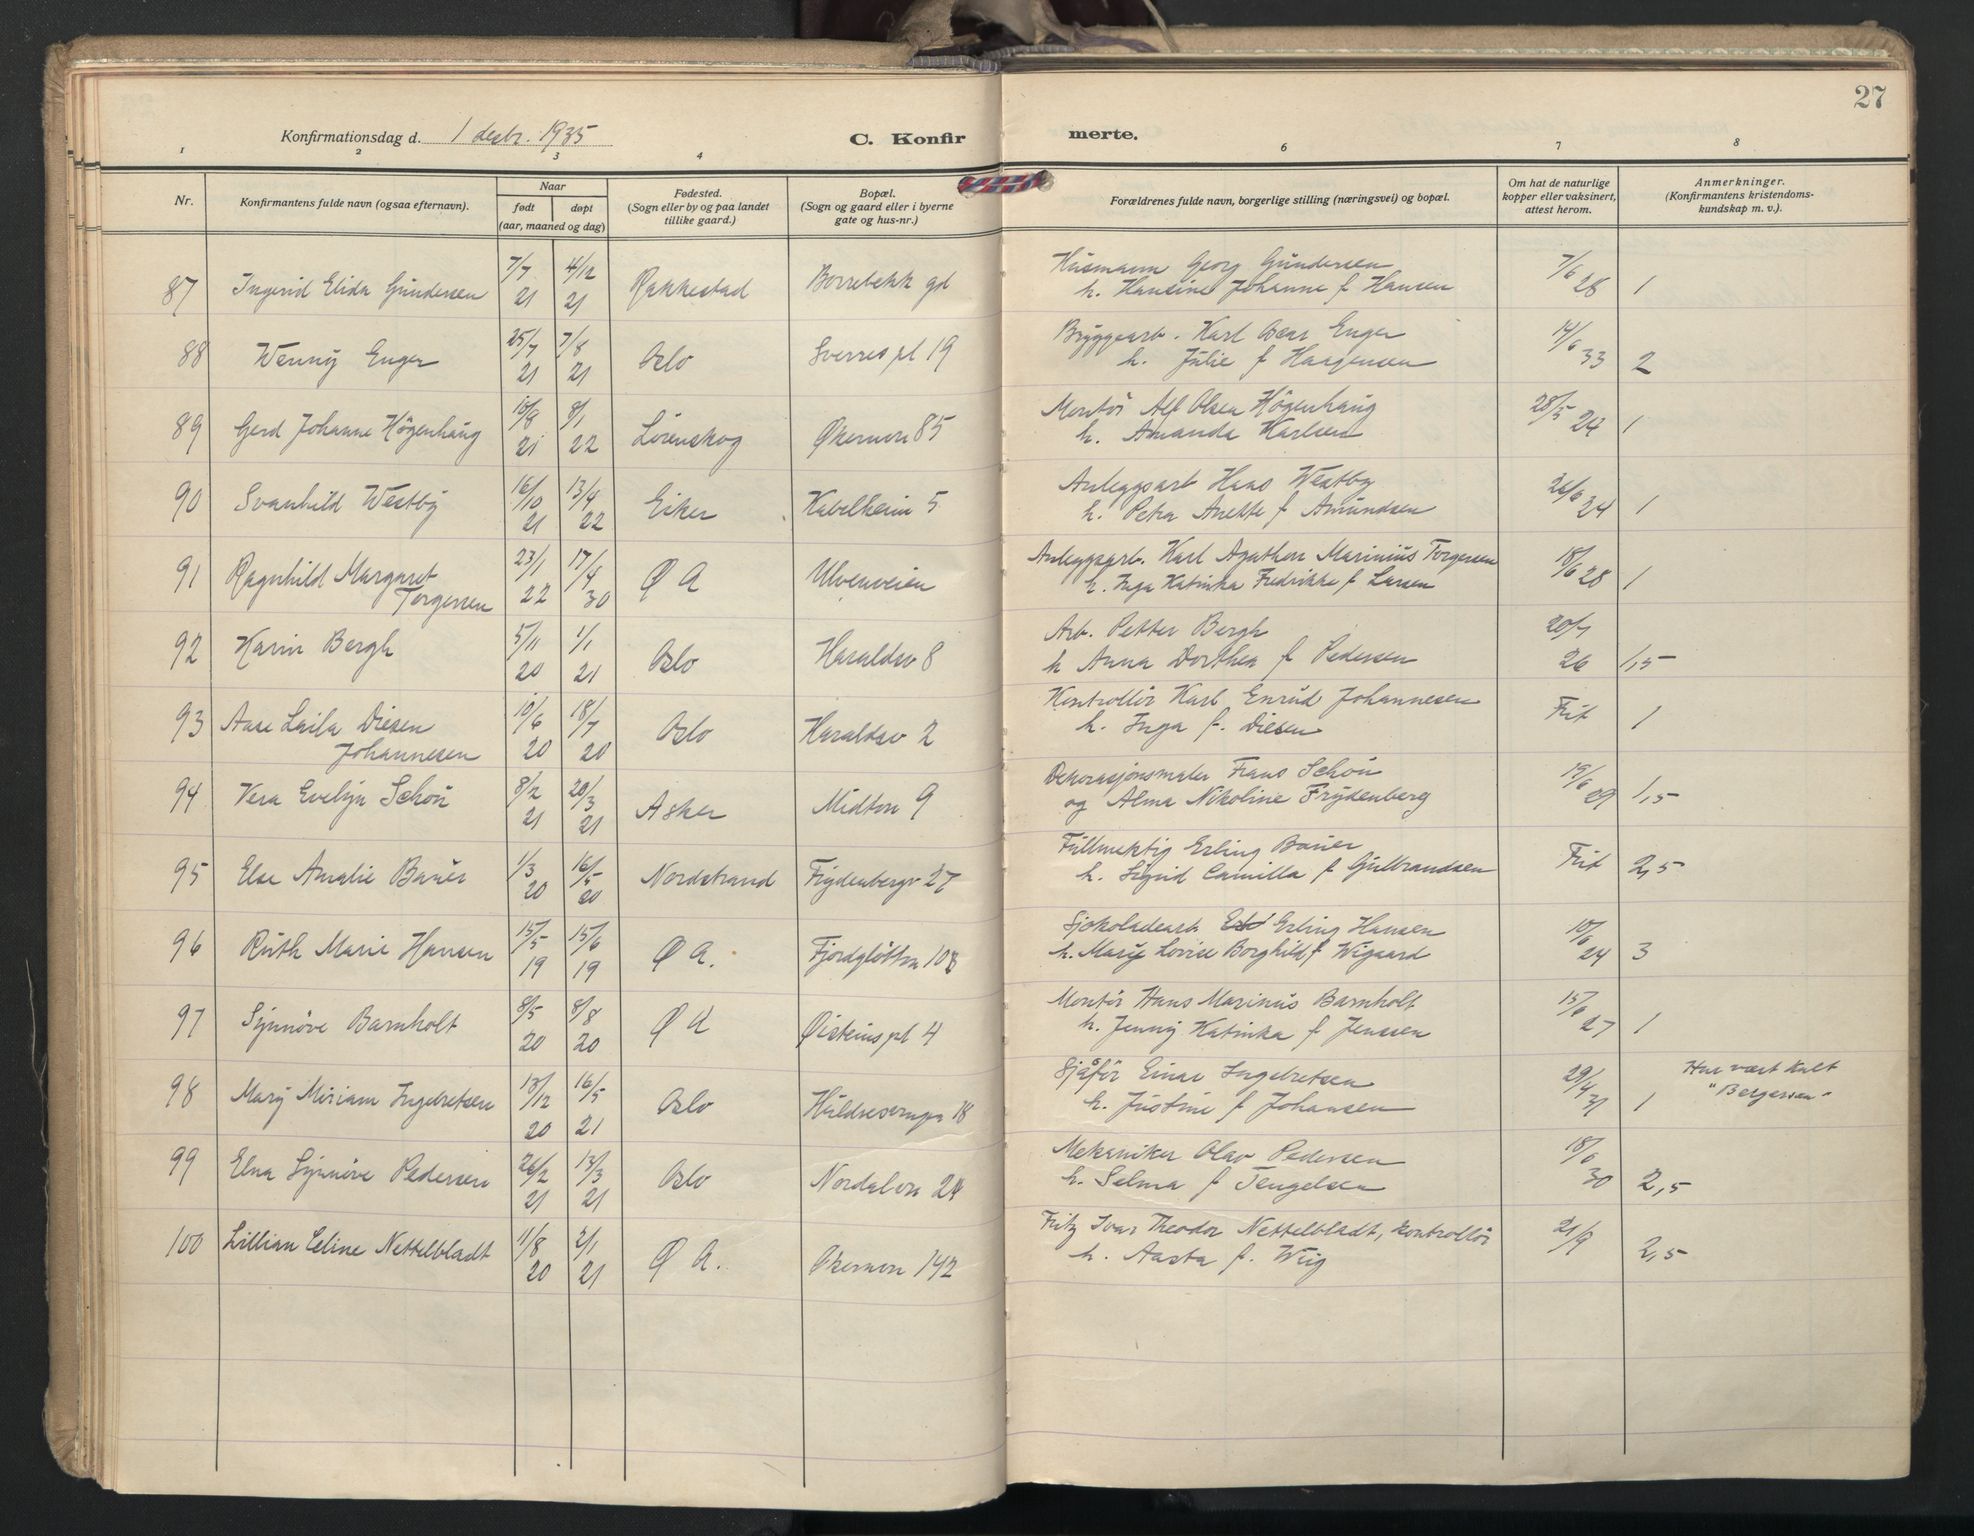 27
Konfirmationsdag d. 1 desbr. 1935
C. Konfirmerte.
1 2 3 4 6 7 8
Nr.
Konfirmantens fulde navn (ogsaa efternavn).
Naar
født døpt
(aar, maaned og dag)
Fødested.
(Sogn eller by og paa landet
tillike gaard.)
Bopæl.
(Sogn og gaard eller i byerne
gate og hus-nr.)
Forældrenes fulde navn, borgerlige stilling (næringsvei) og bopæl.
Om hat de naturlige
kopper eller vaksinert,
attest herom.
Anmerkninger.
(Konfirmantens kristendoms-
kundskap m. v.).
87 Ingerid Elida Gundersen 7/7 21 4/12 21 Rakkestad Borrebekk gd Husmann Georg Gundersen 7/6 28 1
h. Hansine Johanne f Hansen
88 Wenny Enger 25/7 21 7/8 21 Oslo Sverres pl 19 Bryggearb. Karl Enger 14/6 33 2
h. Julie f Haagensen
89 Gerd Johanne Högenhaug 10/8 21 8/1 22 Lørenskog Økernvn 85 Montör Alf Olsen Högenhaug 28/5 24 1
h. Amanda Karlsen
90 Svanhild Westby 16/10 21 13/4 22 Eiker Kabelheim 5 Anleggsarb Hans Westby 26/6 24 1
h. Petra Anette f Amundsen
91 Ragnhild Margaret 23/1 22 17/4 30 Ø A Ulvenveien Anleggsarb. Karl Agathon Marinius Torgersen 18/6 28 1
Torgersen h. Inga Katinka Fredrikke f Larsen
92 Karin Bergh 5/11 20 1/1 21 Oslo Haraldsv 8 Arb. Petter Bergh 20/7 26 1,5
h Anna Dorthea f Pedersen
93 Aase Laila Diesen 10/6 20 18/7 20 Oslo Haraldsv 2 Kontrollör Karl Enrud Johannesen Frit 1
Johannesen h. Inga f. Diesen
94 Vera Evelyn Schou 8/2 21 20/3 21 Asker Midtvn 9 Dekorasjonsmaler Frans Schou 19/6 29 1,5
og Alma Nikoline Frydenberg
95 Else Amalie Bauer 1/3 20 16/5 20 Nordstrand Frydenbergv 27 Fullmektig Erling Bauer Frit 2,5
h. Sigrid Camilla f Gulbrandsen
96 Ruth Marie Hansen 15/5 19 15/6 19 Ø A. Fjordgløttvn 10 Sjokoladearb Erling Hansen 10/6 24 3
h. Marie Lovise Borghild f Wigaard
97 Synnöve Barnholt 8/5 20 8/8 20 Ø A Øisteins pl 4 Montör Hans Marinius Barnholt 15/6 27 1
h. Jenny Katinka f Jenssen
98 Mary Miriam Ingebretsen 13/12 20 16/5 21 Oslo Huldresvingn 18 Sjåför Einar Ingebretsen 29/4 31 1 Har vært kalt
h. Justine f Johansen "Bergersen"
99 Elna Synnöve Pedersen 26/2 21 13/3 21 Oslo Nordalvn 24 Mekaniker Olav Pedersen 18/6 30 2,5
h. Selma f Tengelsen
100 Lillian Celine Nettelbladt 11/8 20 2/1 21 Ø A. Økernvn 142 Fritz Ivar Theodor Nettelbladt, kontrollör 21/9 2,5
h. Aasta f. Wiig